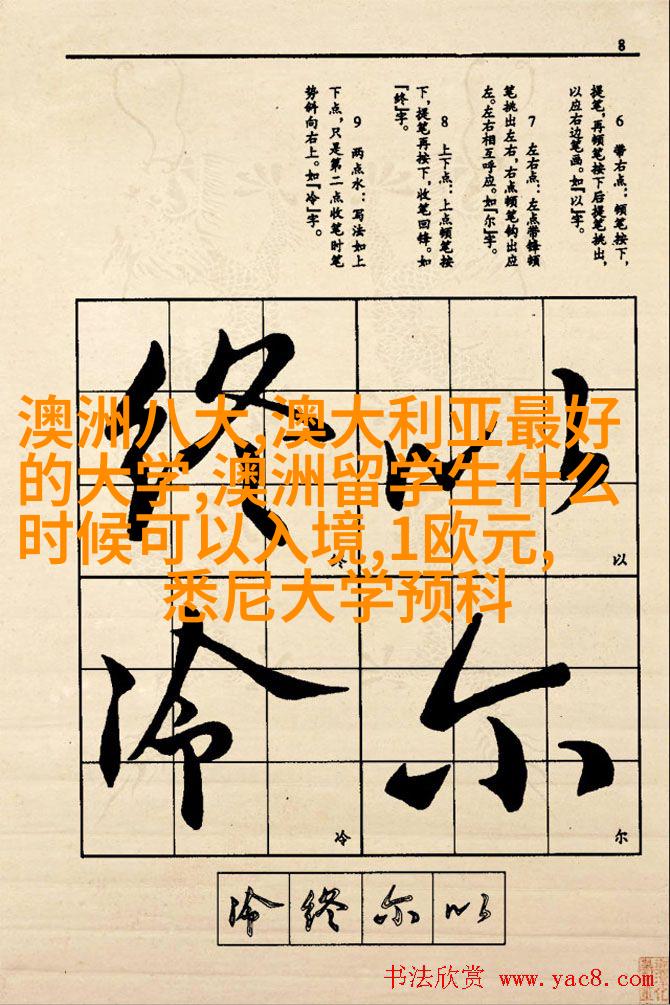 8
6 带右点：顿笔按下，
提笔，再顿笔按下后提笔挑出，
以应右边笔画。如『以』字。
7 左右点：左点带锋顿
笔挑出左右，右点顿笔钩出应
左。左右相互呼应。如『尔』字。
8 上下点：上点顿笔按
下，提笔再按下，收笔回锋。如
『终』字。
9 两点水：写法如上
下点，只是第二点收笔时笔
势斜向右上。如『冷』字。
以
终
尔
冷
澳洲八大,澳大利亚最好
的大学,澳洲留学生什么
时候可以入境,1欧元,
悉尼大学预科
以
终
尔
冷
冷 终 尔 以
书法欣赏 www.yac8.com